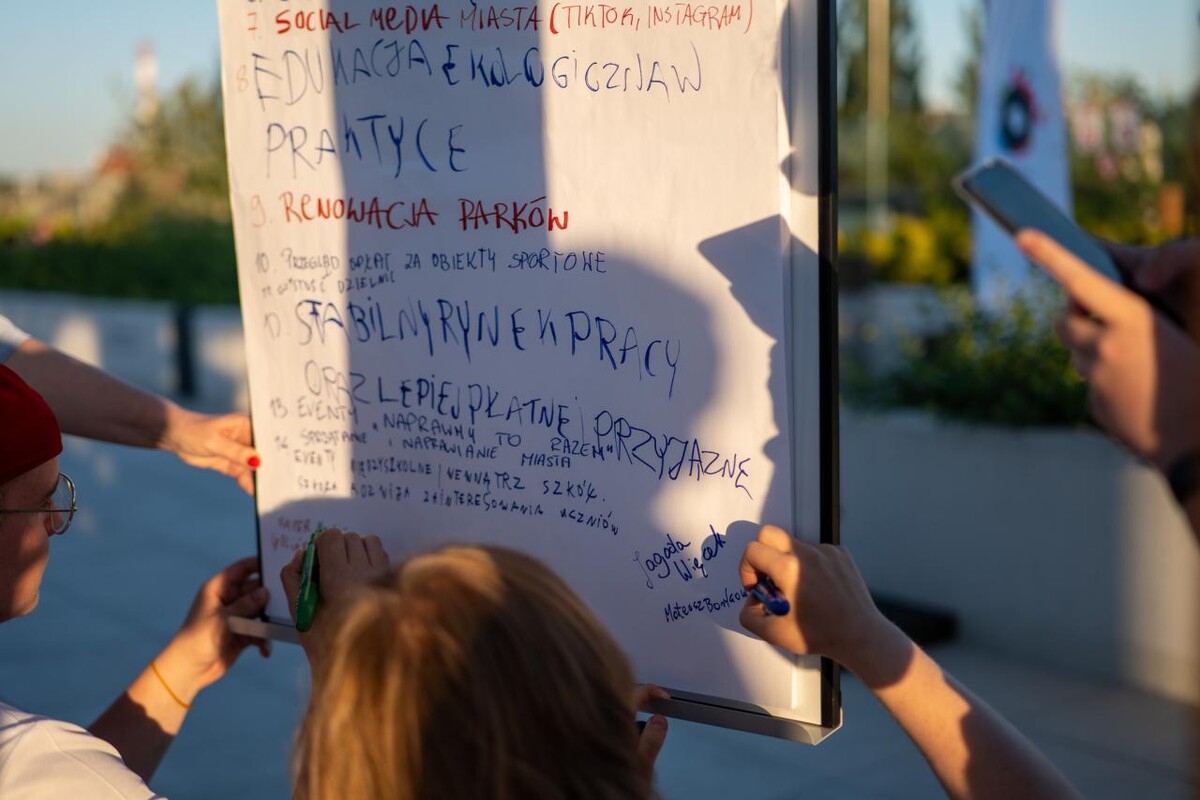 7. SOCIAL MEDIA MIASTA (TIKTOK, INSTAGRAM)
8 EDUKACJA EKOLOGICZNA W
PRAKTYCE
9. RENOWACJA PARKÓW
10. PRZEGLĄD OPŁAT ZA OBIEKTY SPORTOWE
11. DZIELNIC
STABILNY RYNEK PRACY
ORAZ LEPIEJ PŁATNE I PRZYJAZNE
13. EVENTY „NAPRAWMY TO RAZEM"
SPRZĄTANIE I NAPRAWIANIE MIASTA
EVENTY MIĘDZYSZKOLNE / WEWNĄTRZ SZKÓŁ.
SZKOŁA ROZWIJA ZAINTERESOWANIA UCZNIÓW
Jagoda
Mateusz